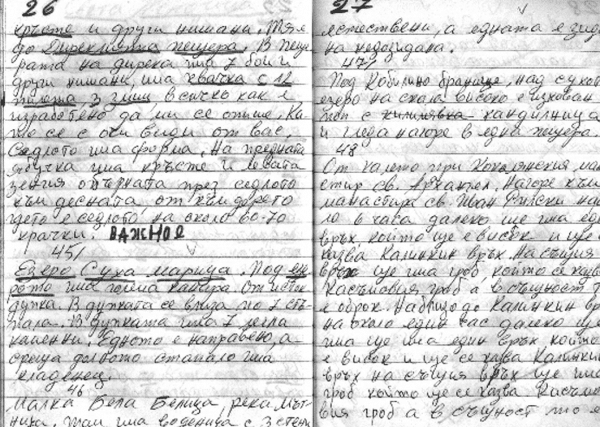 26
кръсте и други нишани. Тя е
до Дирекмита пещера. В пеще
рата на дирека има 7 бои и
други нишани, има квачка с 12
пилета, 3 змии всичко как е
изработено да ми се опише. Ка
то се с очи види от вас.
Седлото има форма. На предната
ябучка има кръсте и левата
зенгия обърната през седлото
към десната, от към дерето
дето е седлото на около 60-70
крачки. ВАЖНОЕ
45/
Езеро Суха марица. Под езе
рото има голяма канара от исток
дупка. В дупката се влиза по 7 стъ
пала. В дупката има 7 легла
каменни. Едното е направено, а
среща долното стапало има
кладенец.
46
Малка Бела Белица, река Мът
ница. Там има воденица с 3 стени
27
естествени, а едната е зида
на недозидана.
47/
Под Кобилино бранище, над сухото
езеро на скала високо е изкован
теп с кандилница
и гледа нагоре в една пещера.
48
От калето при Кокалянския мана
стир св. Архангел. Нагоре към
манастиря св. Иван Рилски на
ло 6 часа далеко ще има един
връх, който ще е висок и ще се
казва Калинкин връх. На същия
връх ще има гроб който се казва
Касъмовия гроб а в същност т
е оброк. На близо до Калинкин вр
на около един час далеко ще
има ще има един връх който
е висок и ще се казва Калинкин
връх на същия връх ще има
гроб който ще се казва Касъмо
вия гроб а в същност то е